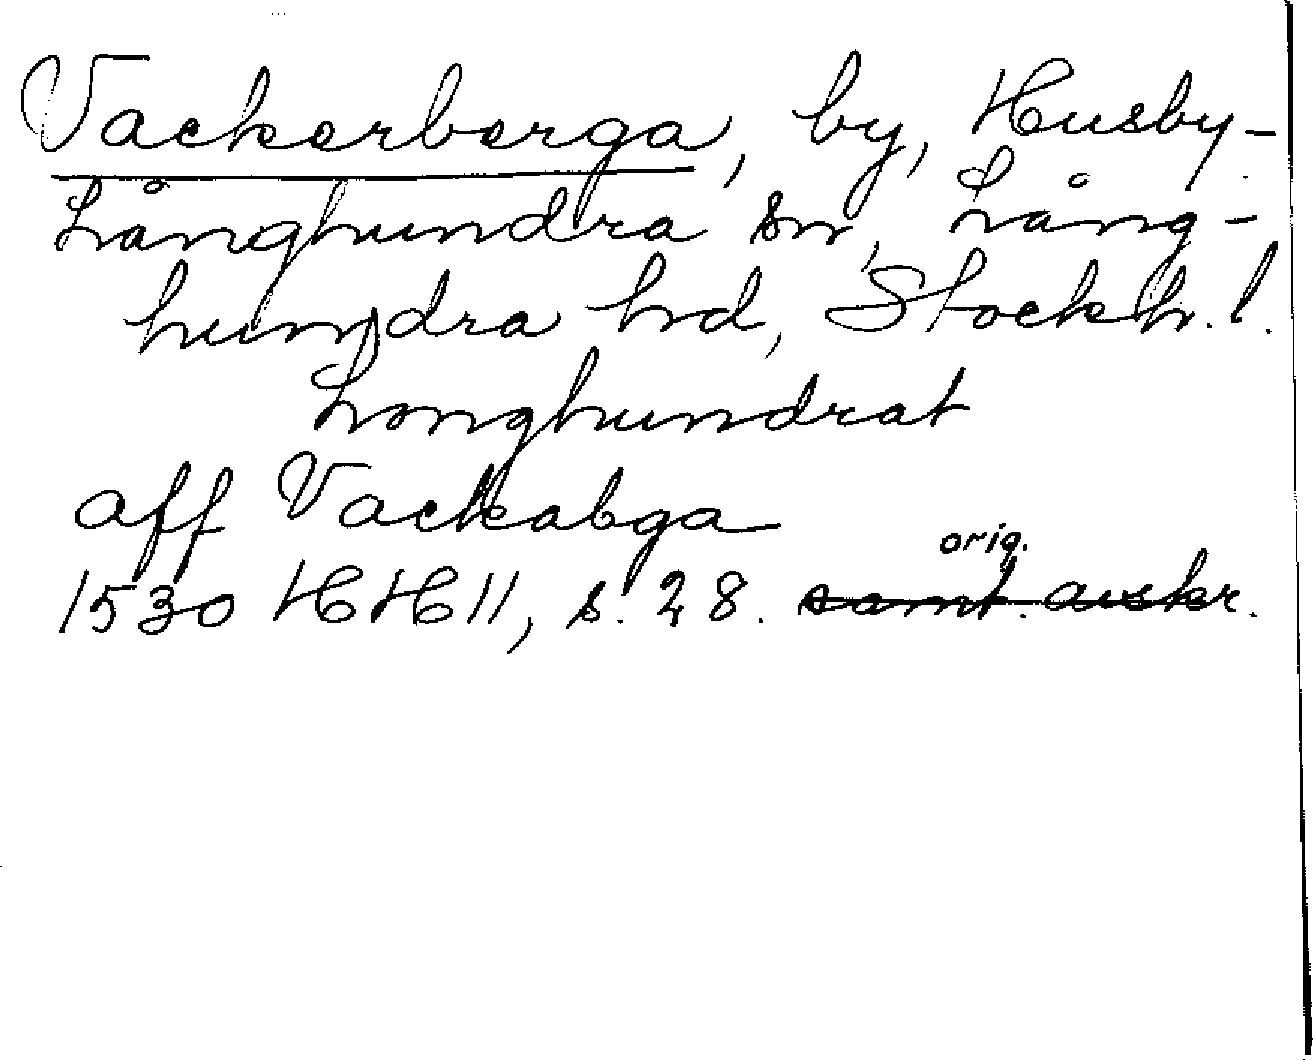 Vackerberga, by, Husby-
Långhundra sn, Lång-
hundra hd, Stockh. l.
Longhundrat
aff Vackabga
orig.
1530 HH 11, s. 28. samt. avskr.